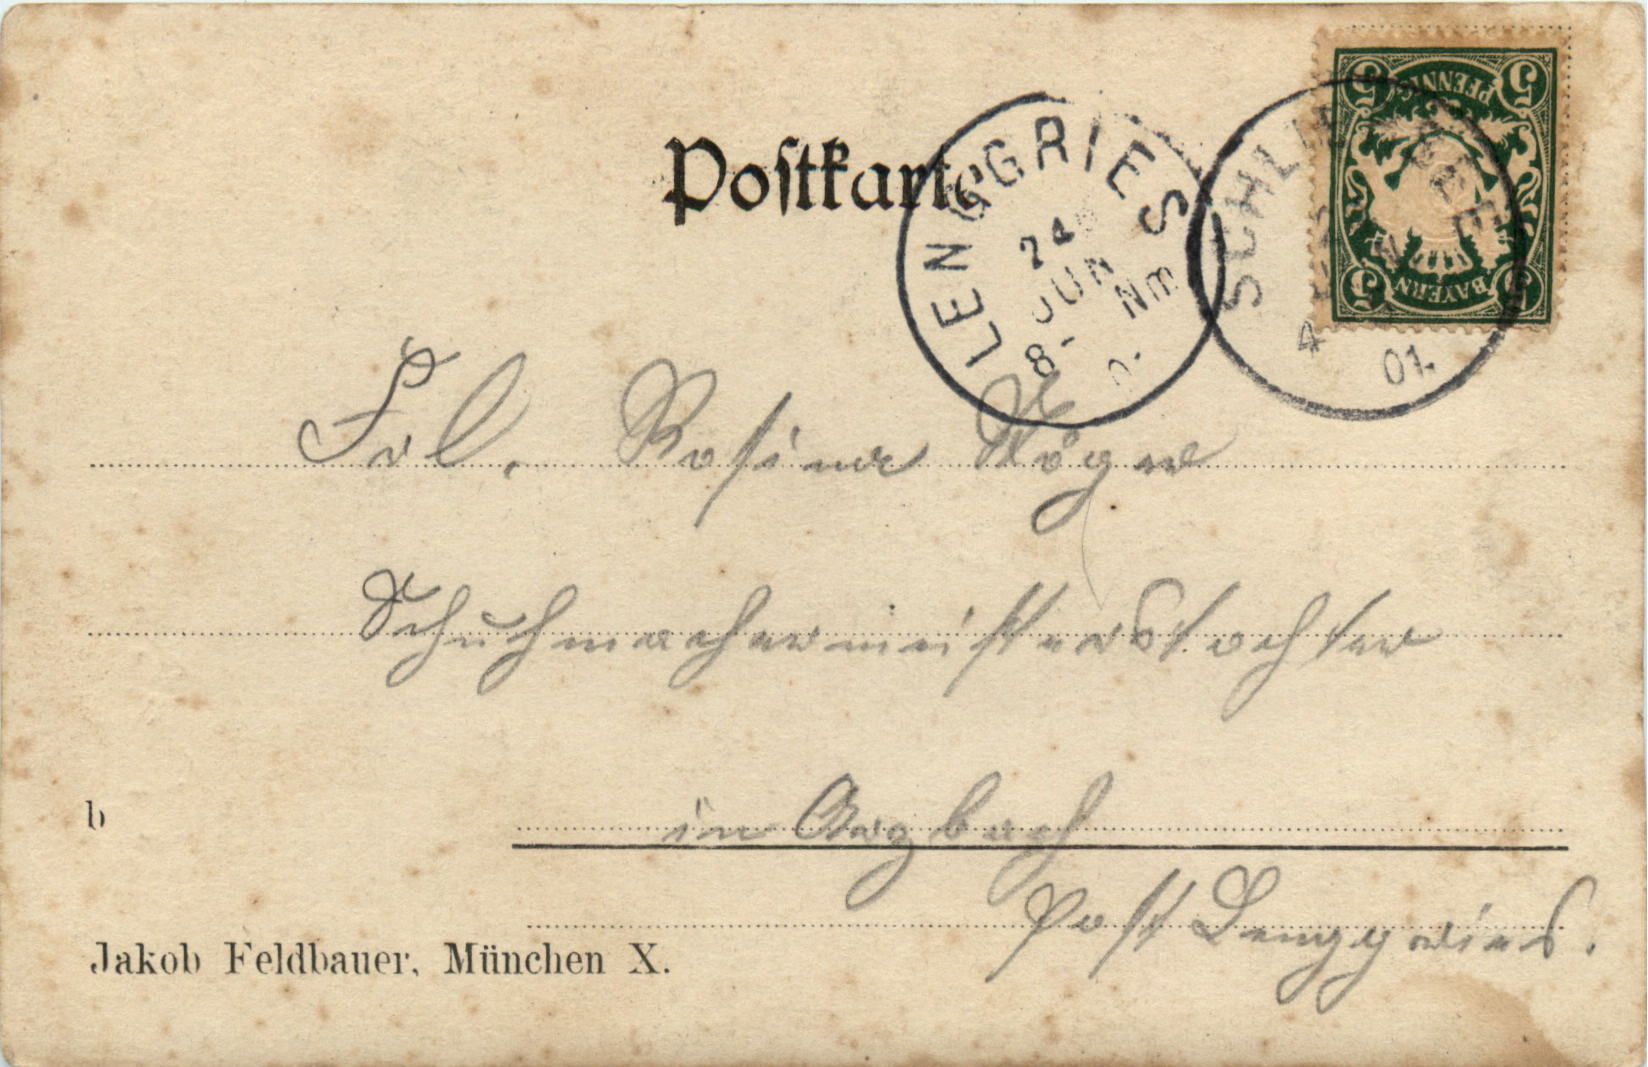 Postkarte
LENGGRIES
24
JUN
8- Nm
SCHLIERSEE
4
01.
5 PFENNIG 5
5 BAYERN 5
Frl. Rosina
Schuhmachermeisterstochter
in Arzbach
Post Lenggries.
b
Jakob Feldbauer, München X.